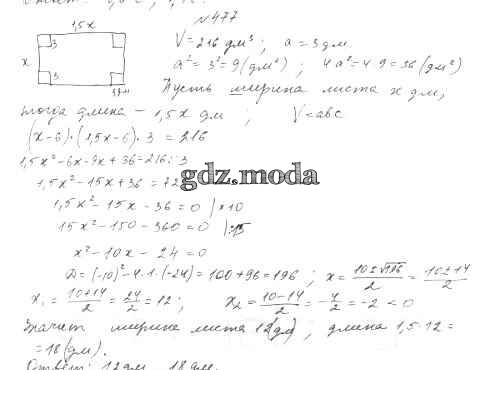 №477
1,5x
3
x
3
V=216 дм³; a=3 дм.
a²=3²=9(дм²); 4a²=4·9=36(дм²)
Пусть ширина листа x дм,
тогда длина – 1,5x дм; V=abc
(x-6)·(1,5x-6)·3=216
1,5x²-6x-9x+36=216:3
1,5x²-15x+36=72
gdz.moda
1,5x²-15x-36=0 |×10
15x²-150-360=0 |:15
x²-10x-24=0
D=(-10)²-4·1·(-24)=100+96=196; x=(10±√196)/2=(10±14)/2
x₁=(10+14)/2=24/2=12; x₂=(10-14)/2=-4/2=-2<0
Значит ширина листа 12(дм), длина 1,5·12=
=18(дм).
Ответ: 12дм, 18дм.